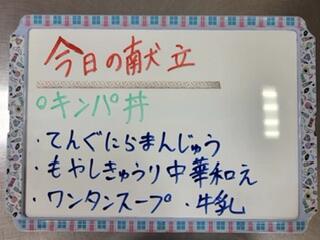 今日の献立
○キンパ丼
・てんぐにらまんじゅう
・もやしきゅうり中華和え
・ワンタンスープ ・牛乳